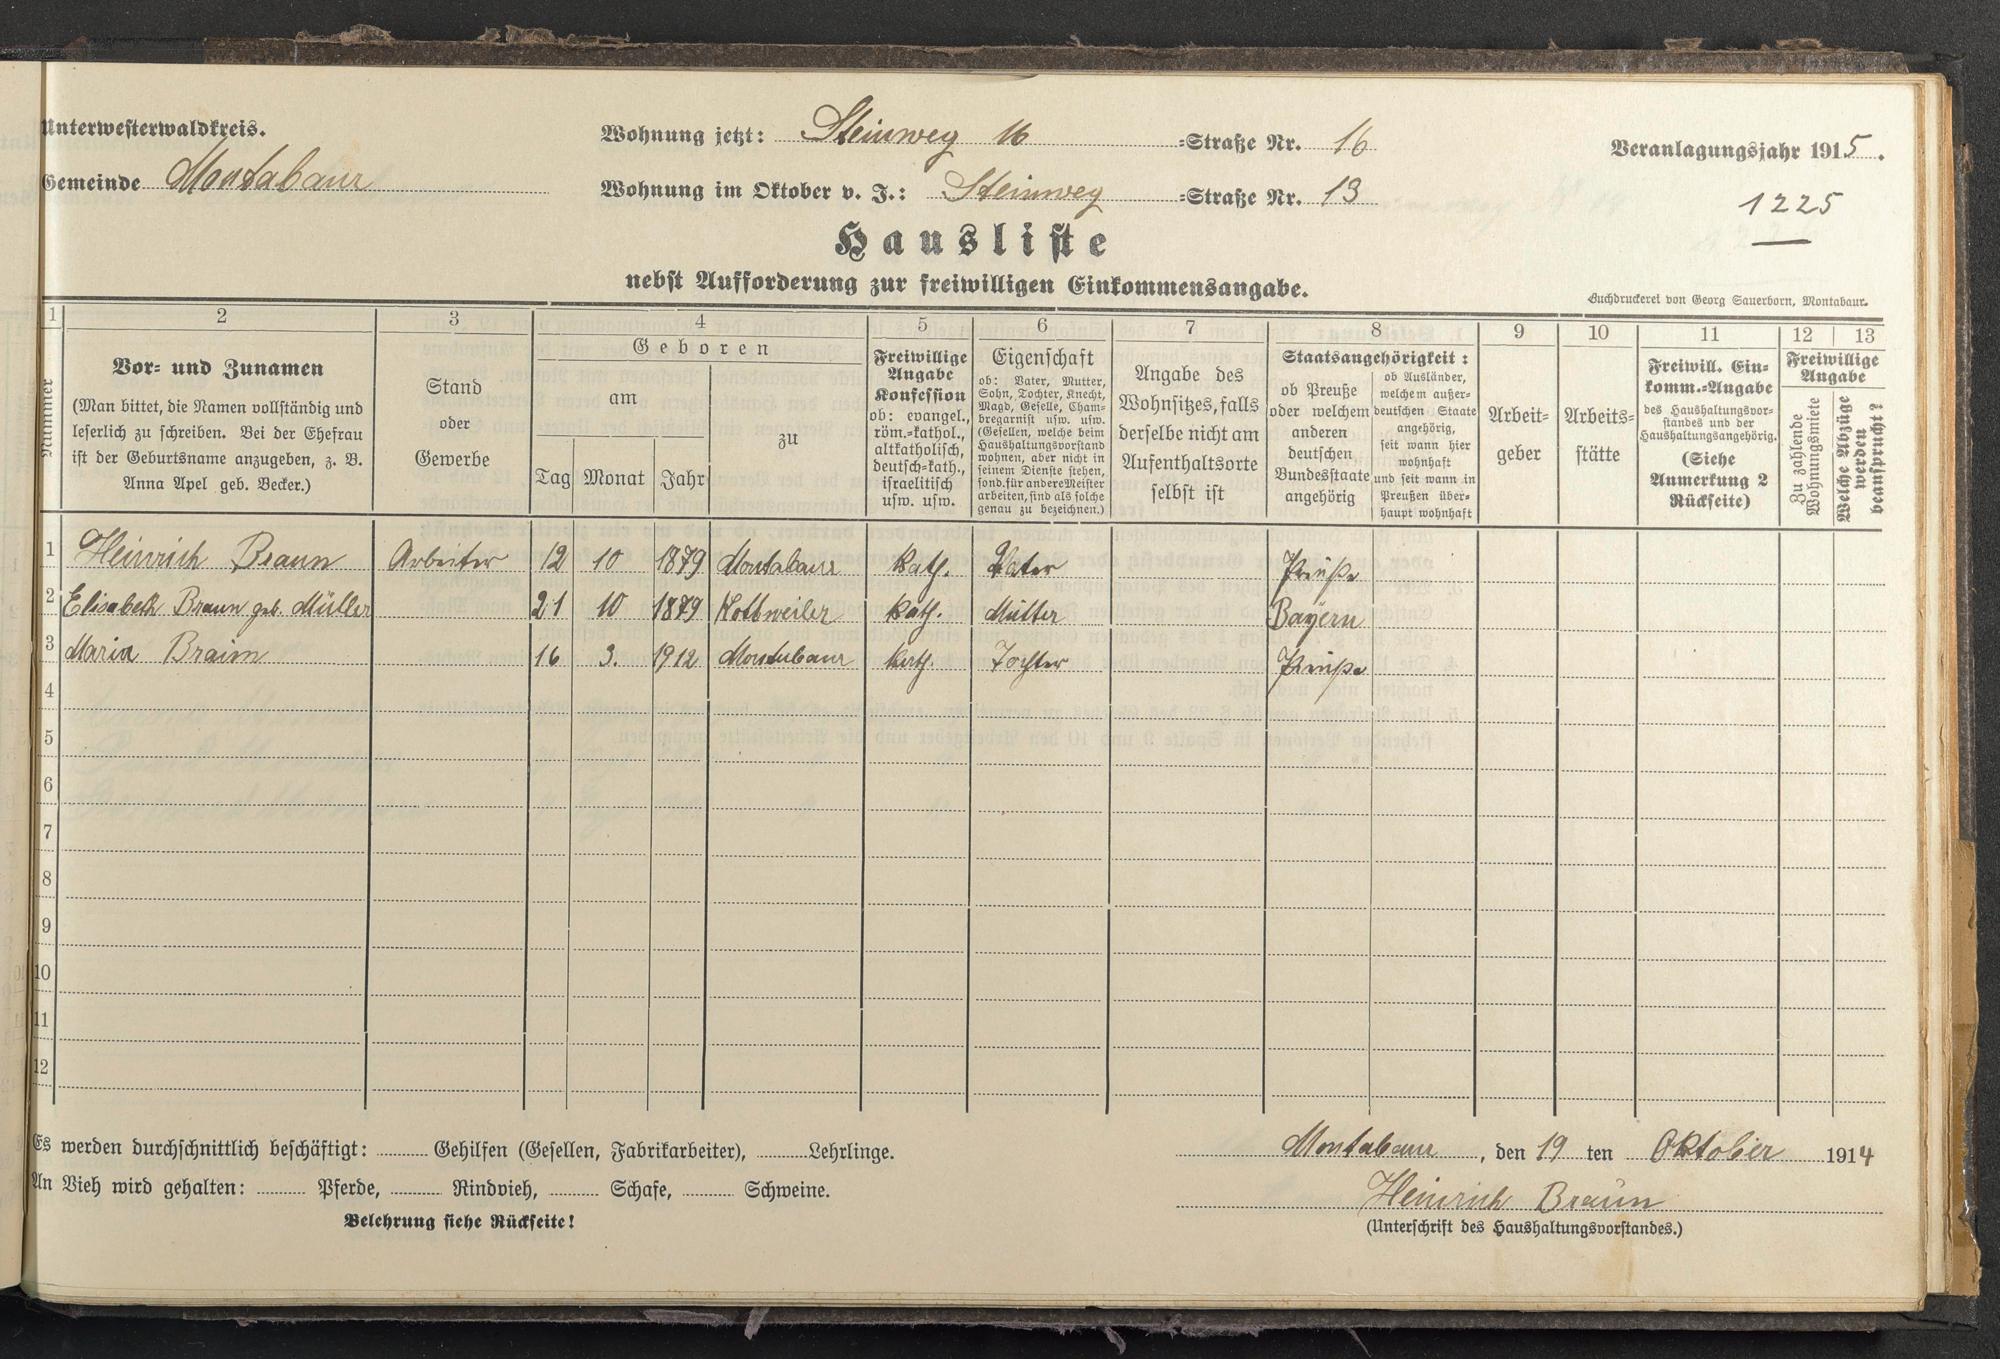 Unterwesterwaldkreis.
Gemeinde Montabaur
Wohnung jetzt: Steinweg 16 =Straße Nr. 16
Wohnung im Oktober v. J.: Steinweg =Straße Nr. 13
Veranlagungsjahr 1915.
1225
Hausliste
nebst Aufforderung zur freiwilligen Einkommensangabe.
Buchdruckerei von Georg Sauerborn, Montabaur.
1 2 3 4 5 6 7 8 9 10 11 12 13
Nummer
Vor- und Zunamen
(Man bittet, die Namen vollständig und
leserlich zu schreiben. Bei der Ehefrau
ist der Geburtsname anzugeben, z. B.
Anna Apel geb. Becker.)
Stand
oder
Gewerbe
Geboren
am
Tag Monat Jahr
zu
Freiwillige
Angabe
Konfession
ob: evangel.,
röm.=kathol.,
altkatholisch,
deutsch=kath.,
israelitisch
usw. usw.
Eigenschaft
ob: Vater, Mutter,
Sohn, Tochter, Knecht,
Magd, Geselle, Cham-
bregarnist usw. usw.
(Gesellen, welche beim
Haushaltungsvorstand
wohnen, aber nicht in
seinem Dienste stehen,
sond. für andere Meister
arbeiten, sind als solche
genau zu bezeichnen.)
Angabe des
Wohnsitzes, falls
derselbe nicht am
Aufenthaltsorte
selbst ist
Staatsangehörigkeit:
ob Preuße
oder welchem
anderen
deutschen
Bundesstaate
angehörig
ob Ausländer,
welchem außer-
deutschen Staate
angehörig,
seit wann hier
wohnhaft
und seit wann in
Preußen über-
haupt wohnhaft
Arbeit-
geber
Arbeits-
stätte
Freiwill. Ein-
komm.=Angabe
des Haushaltungsvor-
standes und der
Haushaltungsangehörig.
(Siehe
Anmerkung 2
Rückseite)
Freiwillige
Angabe
Zu zahlende
Wohnungsmiete
Welche Abzüge
werden
beansprucht?
1 Heinrich Braun Arbeiter 12 10 1879 Montabaur kath. Vater Preuße
2 Elisabeth Braun geb. Müller 21 10 1879 Kottweiler kath. Mutter Bayern
3 Maria Braun 16 3. 1912 Montabaur kath. Tochter Preuße
4
5
6
7
8
9
10
11
12
Es werden durchschnittlich beschäftigt: Gehilfen (Gesellen, Fabrikarbeiter), Lehrlinge.
An Vieh wird gehalten: Pferde, Rindvieh, Schafe, Schweine.
Belehrung siehe Rückseite!
Montabaur, den 19 ten Oktober 1914
Heinrich Braun
(Unterschrift des Haushaltungsvorstandes.)